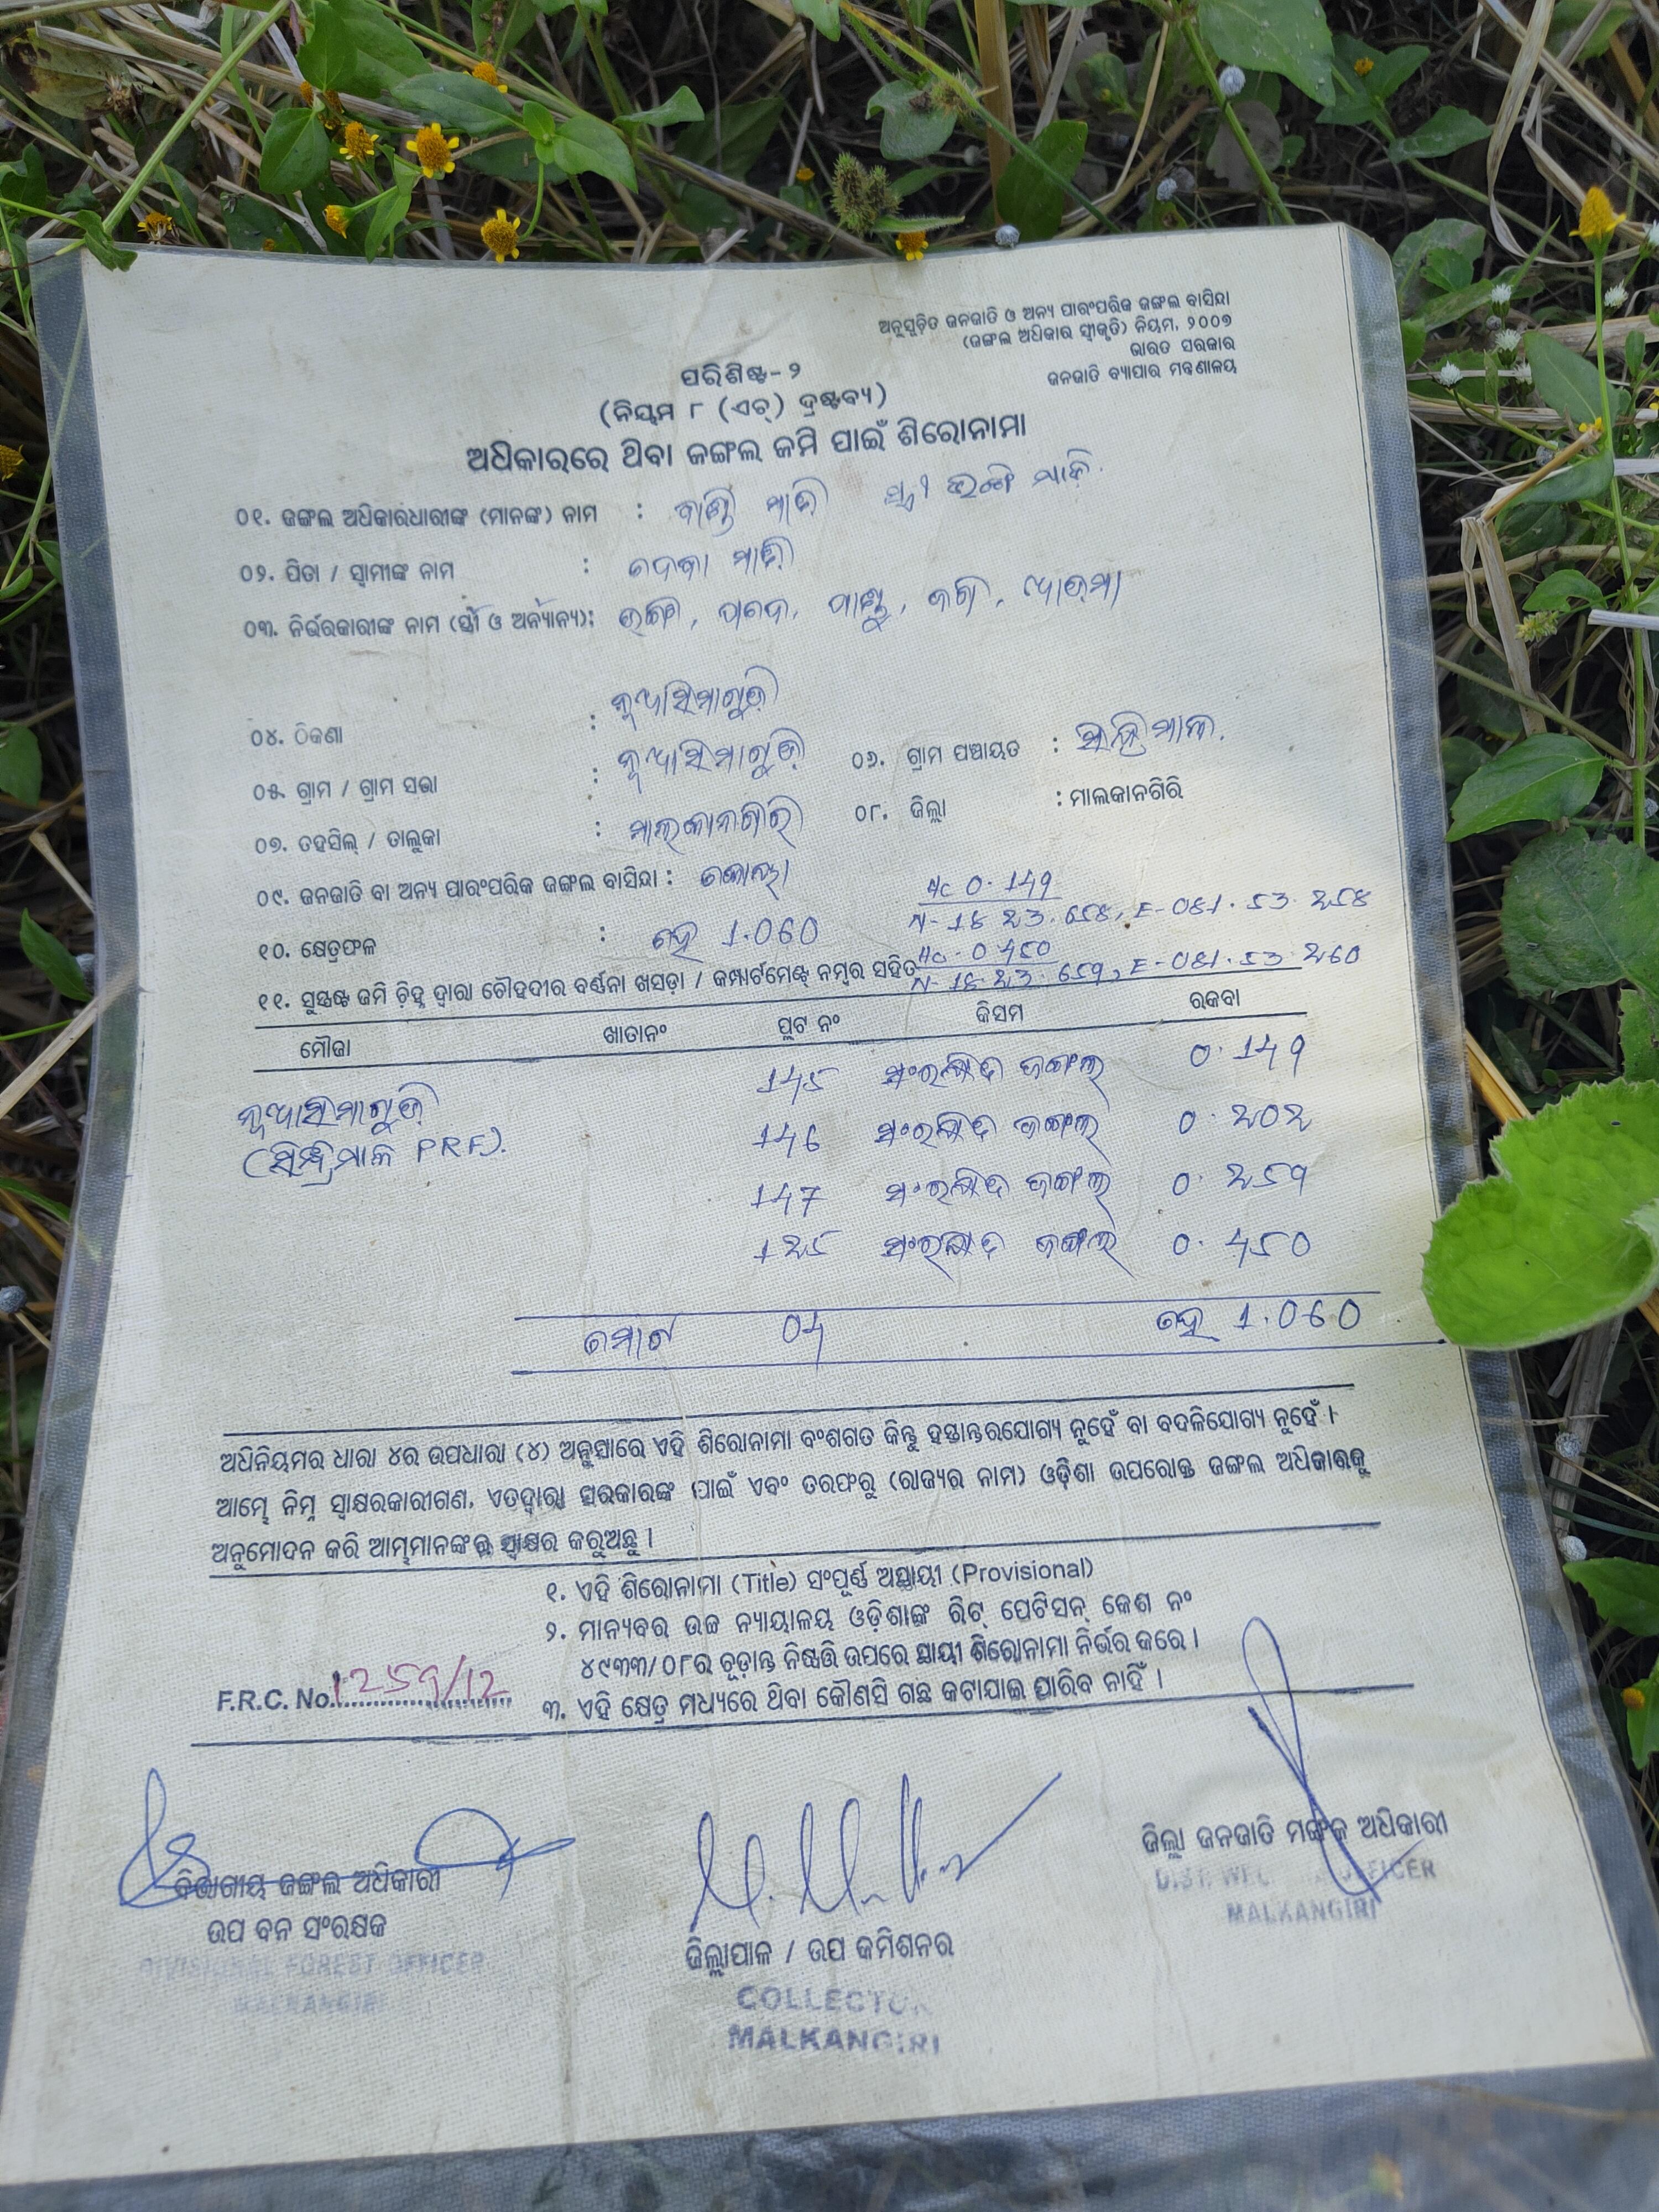 ଅନୁସୂଚିତ ଜନଜାତି ଓ ଅନ୍ୟ ପାରଂପରିକ ଜଙ୍ଗଲ ବାସିନ୍ଦା
(ଜଙ୍ଗଲ ଅଧିକାର ସ୍ୱୀକୃତି) ନିୟମ, ୨୦୦୭
ଭାରତ ସରକାର
ଜନଜାତି ବ୍ୟାପାର ମନ୍ତ୍ରଣାଳୟ
ପରିଶିଷ୍ଟ-୨
(ନିୟମ ୮ (ଏଚ୍) ଦ୍ରଷ୍ଟବ୍ୟ)
ଅଧିକାରରେ ଥିବା ଜଙ୍ଗଲ ଜମି ପାଇଁ ଶିରୋନାମା
୦୧. ଜଙ୍ଗଲ ଅଧିକାରଧାରୀଙ୍କ (ମାନଙ୍କ) ନାମ :
୦୨. ପିତା / ସ୍ୱାମୀଙ୍କ ନାମ :
୦୩. ନିର୍ଭରକାରୀଙ୍କ ନାମ (ସ୍ତ୍ରୀ ଓ ଅନ୍ୟାନ୍ୟ):
୦୪. ଠିକଣା : ନୂଆସିମାଗୁଡ଼ି
୦୫. ଗ୍ରାମ / ଗ୍ରାମ ସଭା : ନୂଆସିମାଗୁଡ଼ି ୦୬. ଗ୍ରାମ ପଞ୍ଚାୟତ :
୦୭. ତହସିଲ୍ / ତାଲୁକା : ମାଲକାନଗିରି ୦୮. ଜିଲ୍ଲା : ମାଲକାନଗିରି
୦୯. ଜନଜାତି ବା ଅନ୍ୟ ପାରଂପରିକ ଜଙ୍ଗଲ ବାସିନ୍ଦା : କୋୟା
Hc 0.149
୧୦. କ୍ଷେତ୍ରଫଳ : ହେ 1.060
Hc - 0.450
୧୧. ସୁସ୍ପଷ୍ଟ ଜମି ଚ଼ିହ୍ନ ଦ୍ୱାରା ଚୌହଦୀର ବର୍ଣ୍ଣନା ଖସଡ଼ା / କମ୍ପାର୍ଟମେଣ୍ଟ୍ ନମ୍ବର ସହିତ
ମୌଜା ଖାତାନଂ ପ୍ଲଟ ନଂ କିସମ ରକବା
ନୂଆସିମାଗୁଡ଼ି 145 ସଂରକ୍ଷିତ ଜଙ୍ଗଲ 0.149
PRF). 146 ସଂରକ୍ଷିତ ଜଙ୍ଗଲ 0.202
147 ସଂରକ୍ଷିତ ଜଙ୍ଗଲ 0.259
125 ସଂରକ୍ଷିତ ଜଙ୍ଗଲ 0.450
ମୋଟ 04 ହେ 1.060
ଅଧିନିୟମର ଧାରା ୪ର ଉପଧାରା (୪) ଅନୁସାରେ ଏହି ଶିରୋନାମା ବଂଶଗତ କିନ୍ତୁ ହସ୍ତାନ୍ତରଯୋଗ୍ୟ ନୁହେଁ ବା ବଦଳିଯୋଗ୍ୟ ନୁହେଁ ।
ଆମ୍ଭେ ନିମ୍ନ ସ୍ୱାକ୍ଷରକାରୀଗଣ, ଏତଦ୍ୱାରା ସରକାରଙ୍କ ପାଇଁ ଏବଂ ତରଫରୁ (ରାଜ୍ୟର ନାମ) ଓଡ଼ିଶା ଉପରୋକ୍ତ ଜଙ୍ଗଲ ଅଧିକାରକୁ
ଅନୁମୋଦନ କରି ଆମ୍ଭମାନଙ୍କର ସ୍ୱାକ୍ଷର କରୁଅଛୁ ।
୧. ଏହି ଶିରୋନାମା (Title) ସଂପୂର୍ଣ୍ଣ ଅସ୍ଥାୟୀ (Provisional)
୨. ମାନ୍ୟବର ଉଚ୍ଚ ନ୍ୟାୟାଳୟ ଓଡ଼ିଶାଙ୍କ ରିଟ୍ ପେଟିସନ୍ କେଶ ନଂ
୪୯୩୩/୦୮ର ଚୂଡ଼ାନ୍ତ ନିଷ୍ପତ୍ତି ଉପରେ ସ୍ଥାୟୀ ଶିରୋନାମା ନିର୍ଭର କରେ ।
F.R.C. No. 1259/12 ୩. ଏହି କ୍ଷେତ୍ର ମଧ୍ୟରେ ଥିବା କୌଣସି ଗଛ କଟାଯାଇ ପାରିବ ନାହିଁ ।
ବିଭାଗୀୟ ଜଙ୍ଗଲ ଅଧିକାରୀ
ଉପ ବନ ସଂରକ୍ଷକ
DIVISIONAL FOREST OFFICER
MALKANGIRI
ଜିଲ୍ଲାପାଳ / ଉପ କମିଶନର
COLLECTOR
MALKANGIRI
ଜିଲ୍ଲା ଜନଜାତି ମଙ୍ଗଳ ଅଧିକାରୀ
OFFICER
MALKANGIRI